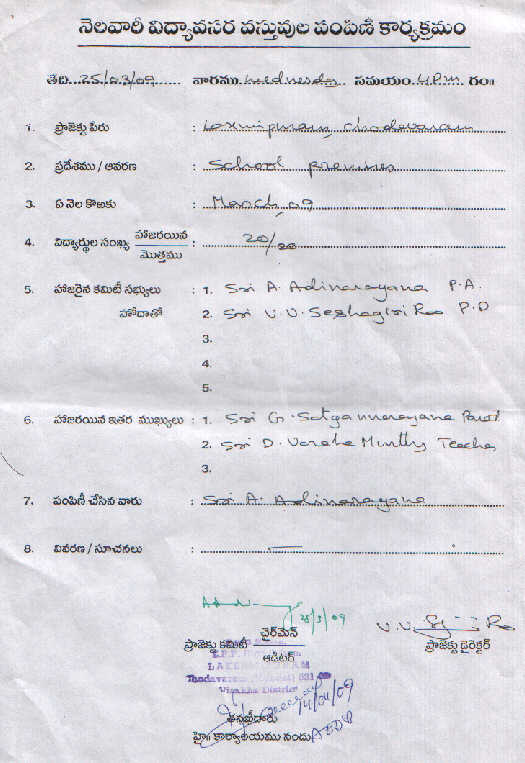 నెలవారీ విద్యావసర వస్తువుల పంపిణీ కార్యక్రమం
తేది 25/03/09 వారము wednesday సమయం 4 P.m గం॥
1. ప్రాజెక్టు పేరు : Laxmipuram, Chodavaram
2. ప్రదేశము / ఆవరణ : School premises
3. ఏ నెల కొఱకు : March, 09
4. విద్యార్థుల సంఖ్య హాజరయిన / మొత్తము : 20/20
5. హాజరైన కమిటీ సభ్యులు : 1. Sri A. Adinarayana P.A.
హోదాతో 2. Sri V.V. Seshagiri Rao P.D
3.
4.
5.
6. హాజరయిన ఇతర ముఖ్యులు : 1. Sri G. Satyannarayana
2. Sri D. Varaha Murthy Teacher
3.
7. పంపిణీ చేసిన వారు : Sri A. Adinarayana
8. వివరణ / సూచనలు :
25/3/09
ప్రాజెక్టు కమిటీ చైర్‌మెన్ / ఆడిటర్
V.V. ప్రాజెక్టు డైరెక్టర్
Visakha District
14/04/09
తనిఖీదారు
హై॥ కార్యాలయము నందు